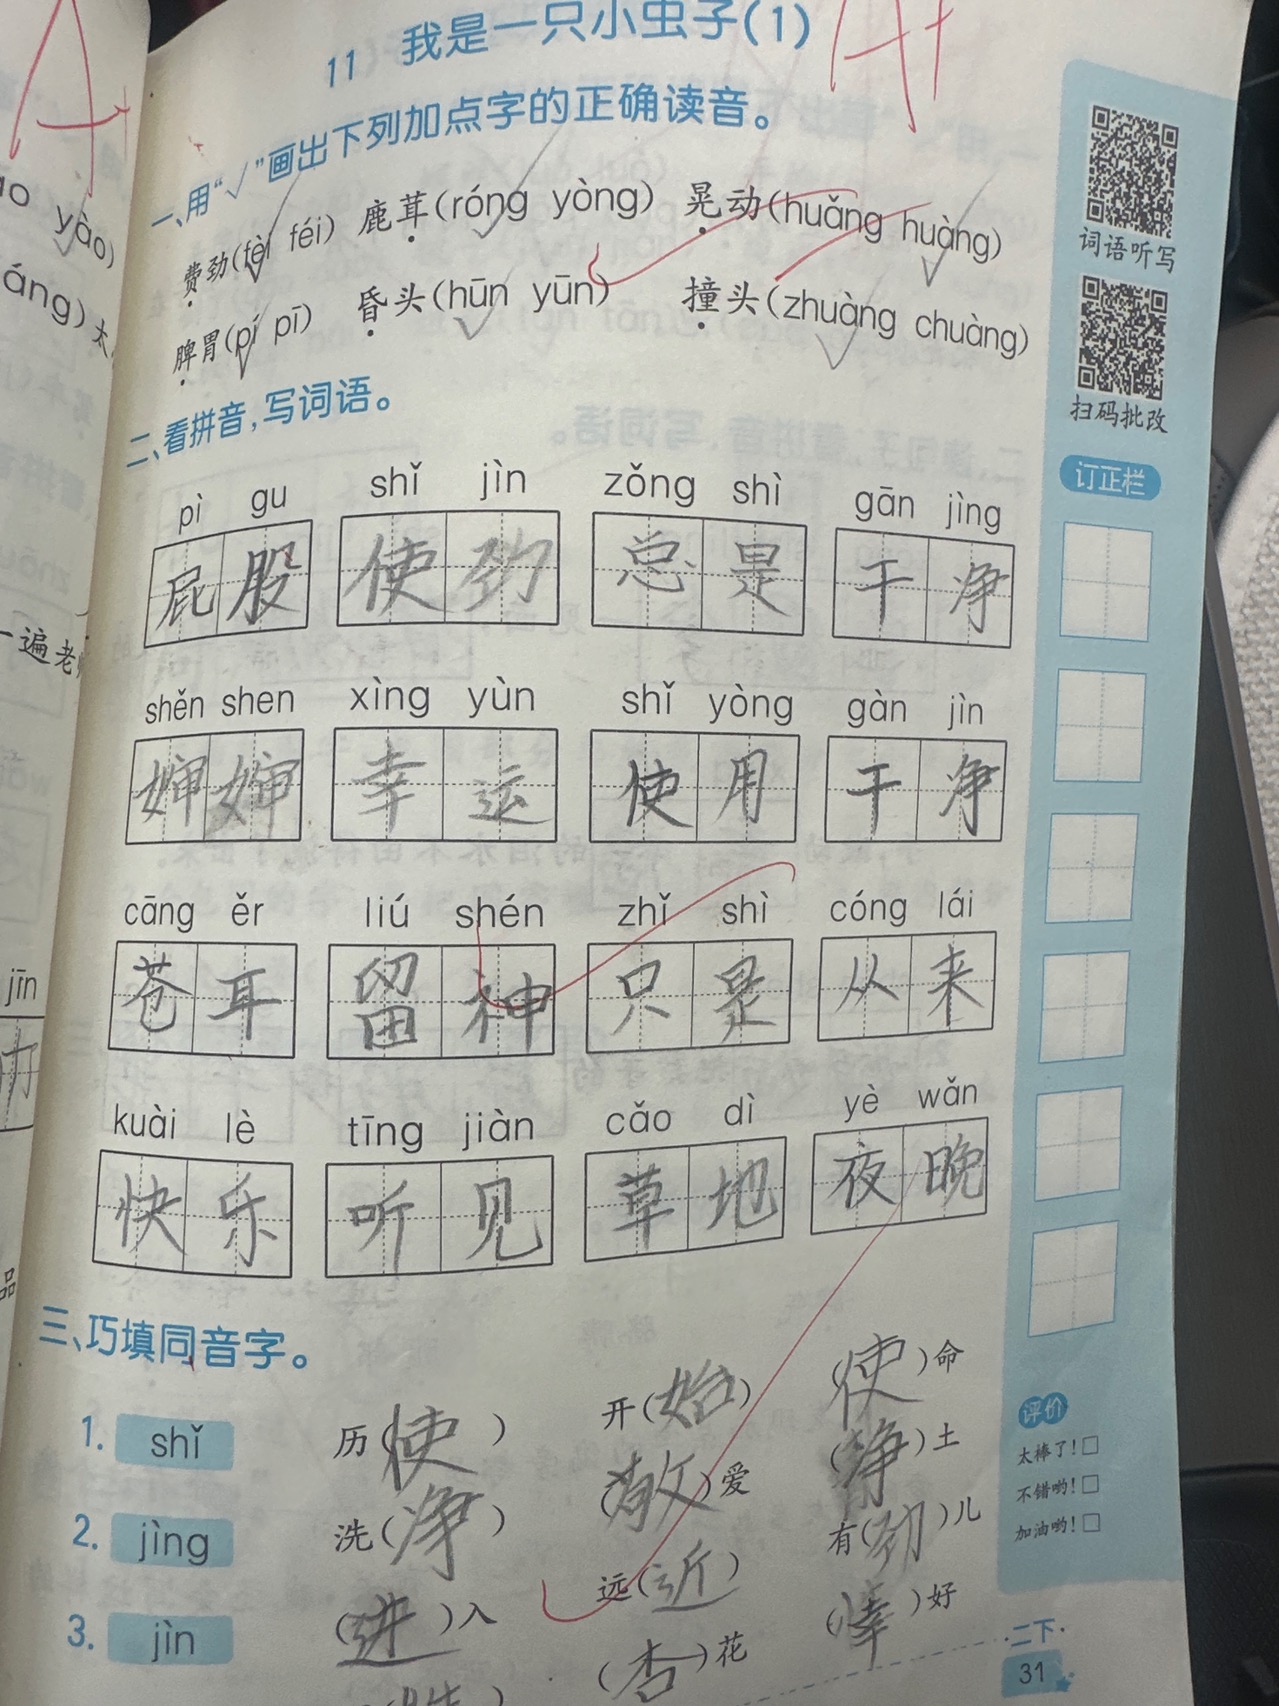 11 我是一只小虫子(1)
A+
A+
一、用“√”画出下列加点字的正确读音。
费劲(fèi féi) 鹿茸(róng yòng) 晃动(huǎng huàng)
脾胃(pí pī) 昏头(hūn yūn) 撞头(zhuàng chuàng)
二、看拼音,写词语。
pì gu shǐ jìn zǒng shì gān jìng
屁股 使劲 总是 干净
shěn shen xìng yùn shǐ yòng gàn jìn
婶婶 幸运 使用 干净
cāng ěr liú shén zhǐ shì cóng lái
苍耳 留神 只是 从来
kuài lè tīng jiàn cǎo dì yè wǎn
快乐 听见 草地 夜晚
三、巧填同音字。
1. shǐ 历(使) 开(始) (使)命
2. jìng 洗(净) (敬)爱 (静)土
3. jìn (进)入 远(近) 有(劲)儿
(杏)花 (幸)好
词语听写
扫码批改
订正栏
评价
太棒了!□
不错哟!□
加油哟!□
二下
31
yào)
áng)
一遍老
jīn
品